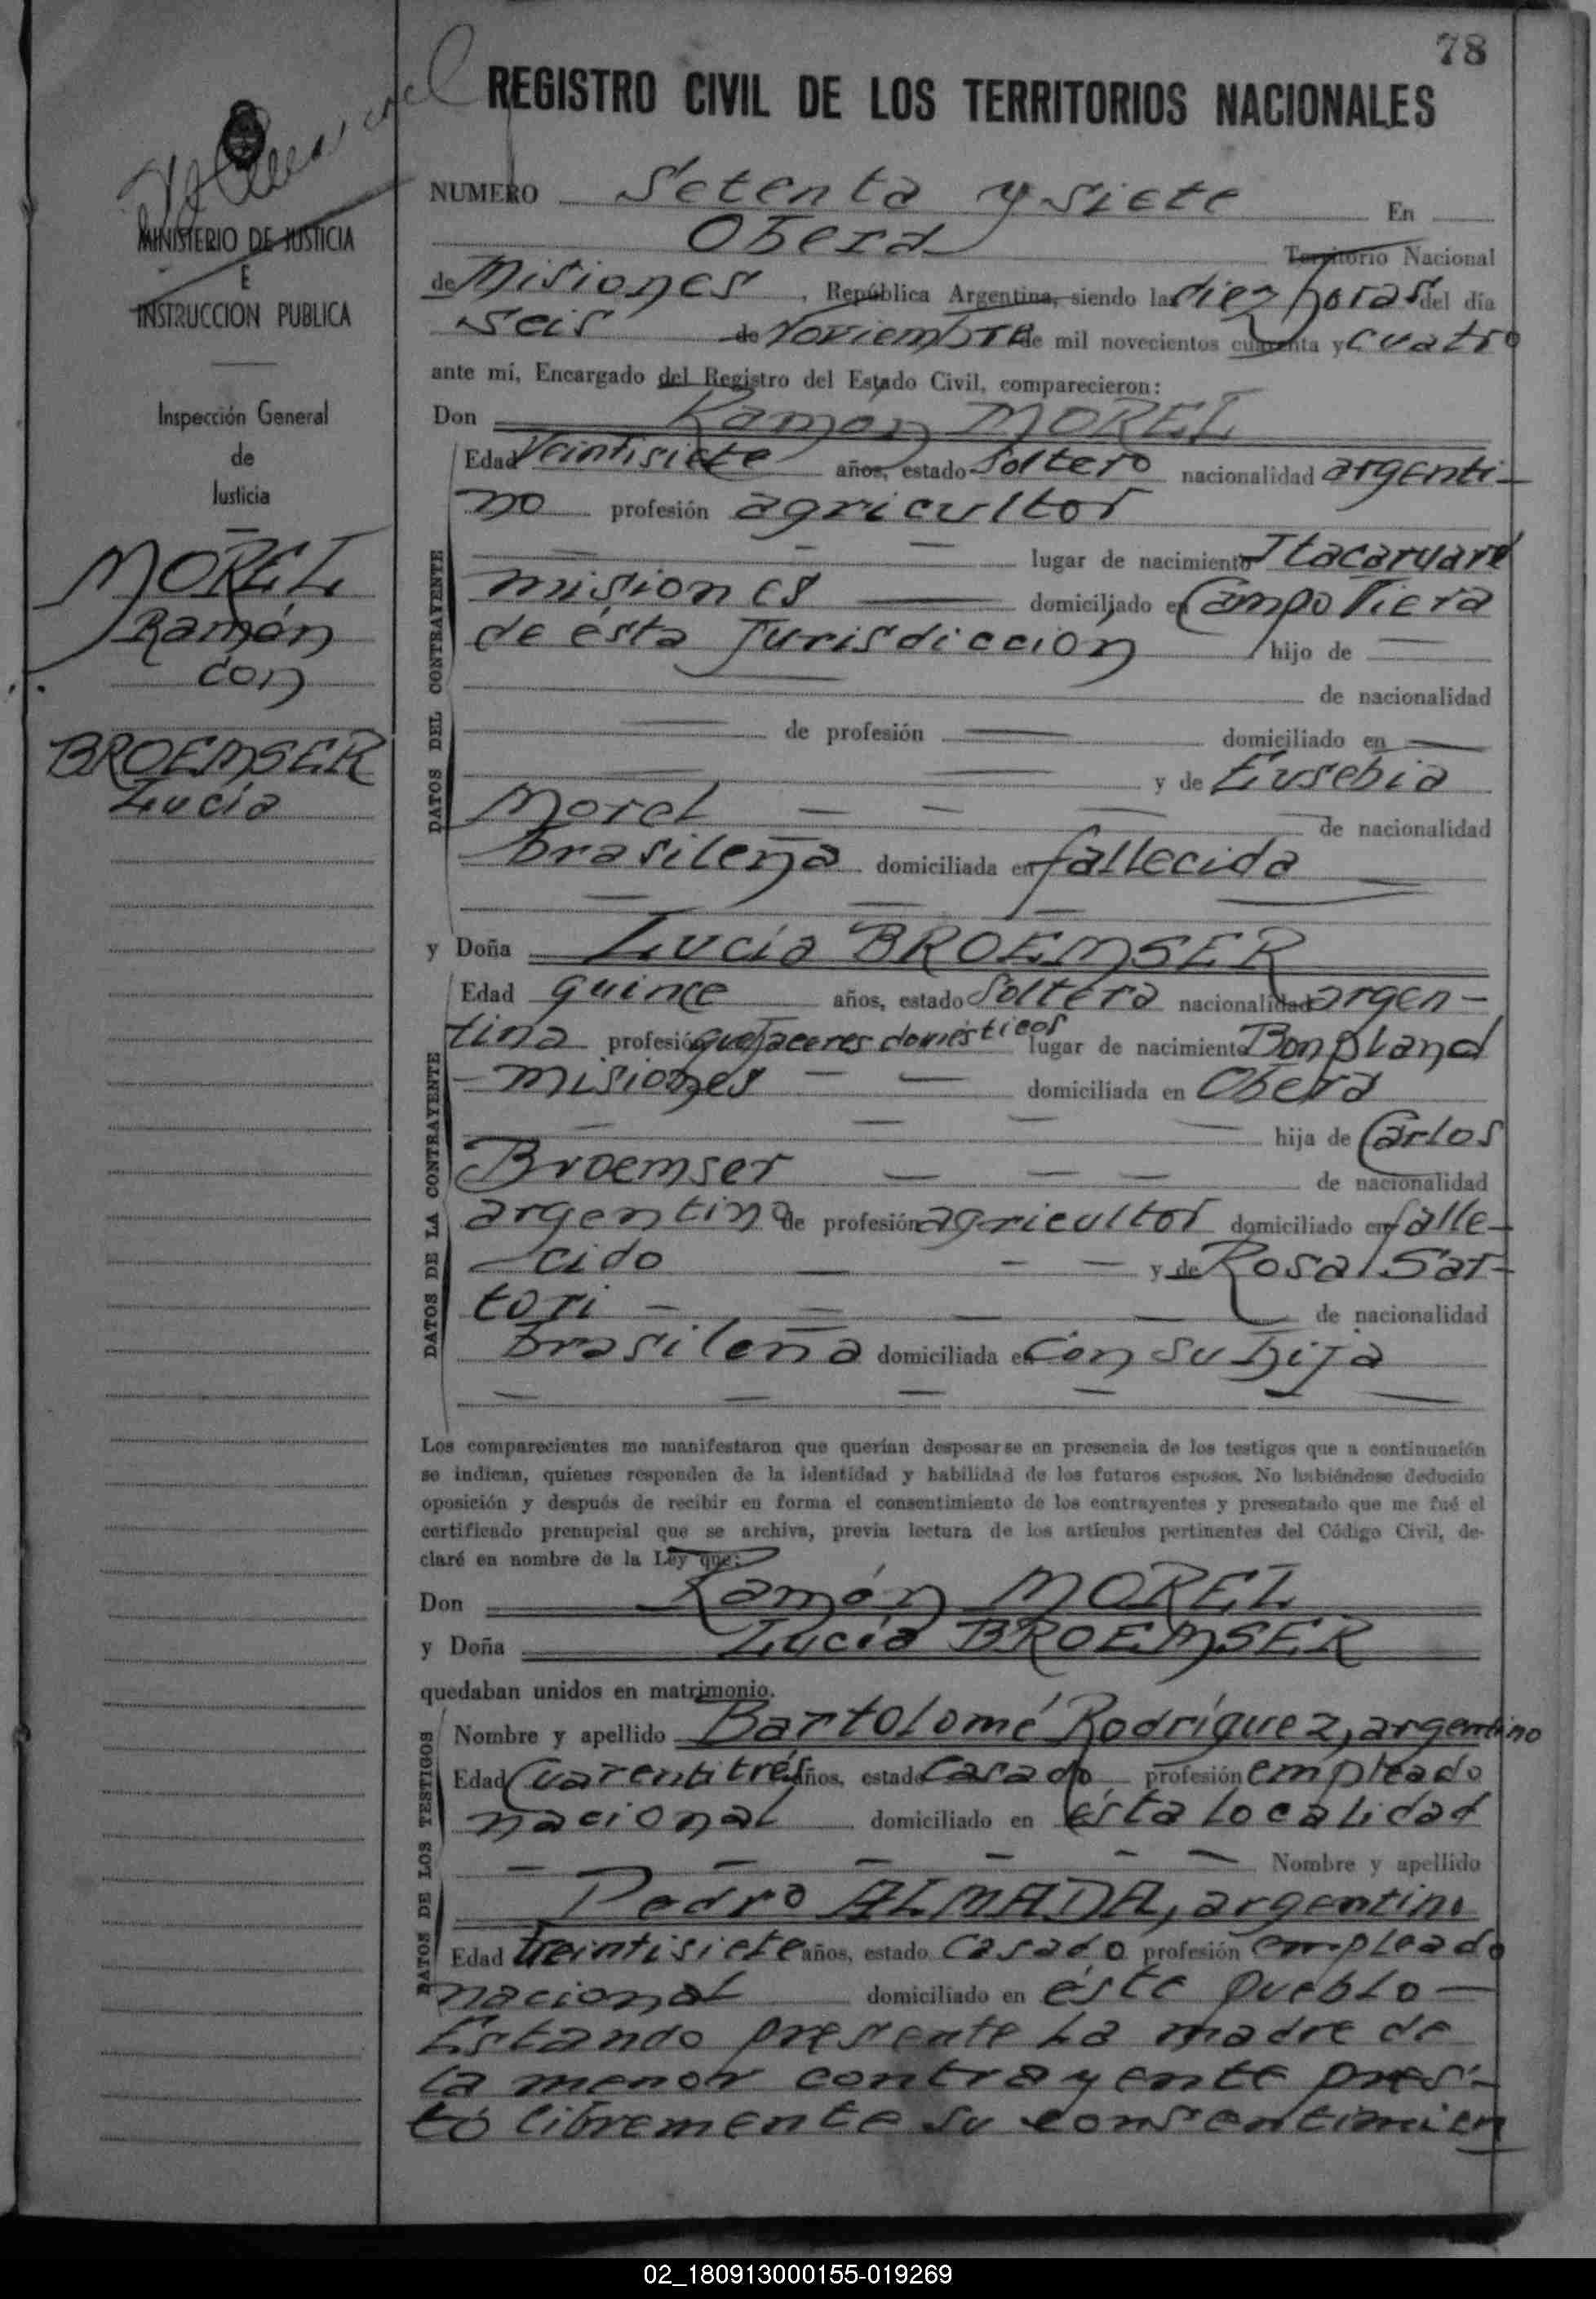 78
REGISTRO CIVIL DE LOS TERRITORIOS NACIONALES
MINISTERIO DE JUSTICIA
E
INSTRUCCION PUBLICA
Inspección General
de
Justicia
MOREL
Ramón
con
BROEMSER
Lucía
NUMERO Setenta y siete En
Oberá Territorio Nacional
de Misiones, República Argentina, siendo las diez horas del día
seis de Noviembre de mil novecientos cuarenta y cuatro
ante mí, Encargado del Registro del Estado Civil, comparecieron:
Don Ramón MOREL
DATOS DEL CONTRAYENTE
Edad Veintisiete años, estado Soltero nacionalidad argenti-
no profesión agricultor
lugar de nacimiento Itacaruaré
misiones domiciliado en Campo Viera
de ésta Jurisdiccion hijo de
de nacionalidad
de profesión domiciliado en
y de Eusebia
Morel de nacionalidad
brasileña domiciliada en fallecida
y Doña Lucía BROEMSER
DATOS DE LA CONTRAYENTE
Edad quince años, estado Soltera nacionalidad argen-
tina profesión quejaceres domésticos lugar de nacimiento Bonpland
misiones domiciliada en Oberá
hija de Carlos
Broemser de nacionalidad
argentina de profesión agricultor domiciliado en falle-
cido y de Rosa Sar-
tori de nacionalidad
brasileña domiciliada en Con su hija
Los comparecientes me manifestaron que querían desposarse en presencia de los testigos que a continuación
se indican, quienes responden de la identidad y habilidad de los futuros esposos. No habiéndose deducido
oposición y después de recibir en forma el consentimiento de los contrayentes y presentado que me fué el
certificado prenupcial que se archiva, previa lectura de los artículos pertinentes del Código Civil, de-
claré en nombre de la Ley que:
Don Ramón MOREL
y Doña Lucía BROEMSER
quedaban unidos en matrimonio.
DATOS DE LOS TESTIGOS
Nombre y apellido Bartolomé Rodríguez, argentino
Edad Cuarentitrés años, estado Casado profesión empleado
nacional domiciliado en ésta localidad
Nombre y apellido
Pedro ALMADA, argentino
Edad treintisiete años, estado Casado profesión empleado
nacional domiciliado en éste pueblo
Estando presente la madre de
la menor contrayente pres-
tó libremente su consentimien
02_180913000155-019269